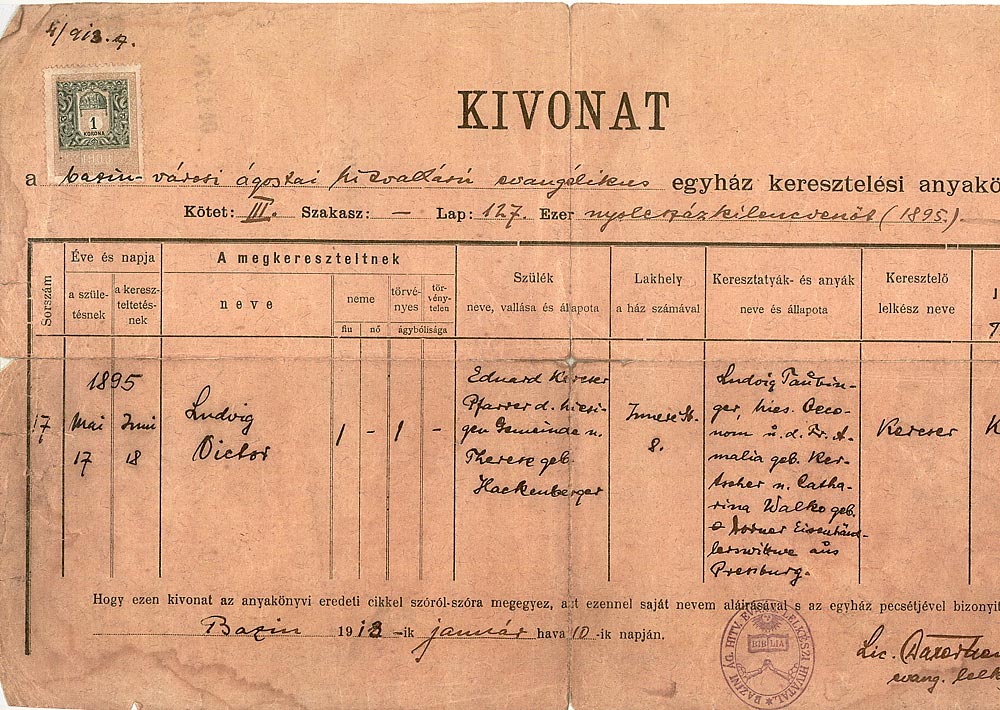 4/913.
1
KORONA
KIVONAT
a bazin-városi ágostai hitvallású evangélikus egyház keresztelési anyakö
Kötet: III. Szakasz: — Lap: 127. Ezer nyolcszázkilencvenöt (1895.)
Sorszám
Éve és napja
a szüle-
tésnek
a keresz-
teltetés-
nek
A megkereszteltnek
neve
neme
fiu
nő
törvé-
nyes
tör-
vény-
telen
ágybólisága
Szülék
neve, vallása és állapota
Lakhely
a ház számával
Keresztatyák- és anyák
neve és állapota
Keresztelő
lelkész neve
17
1895
Mai
17
Juni
18
Ludvig
Victor
1
-
1
-
Eduard Kercser
Pfarrer d. hiesi-
gen Gemeinde u.
Therese geb.
Hackenberger
Innere St.
8.
Ludvig Taubin-
ger, hies. Oeco-
nom u. d. Fr. A-
malia geb. Ker-
tscher u. Catha-
rina Walko geb.
Dorner Eisenhänd-
lerswittwe aus
Pressburg.
Kercser
K
Hogy ezen kivonat az anyakönyvi eredeti cikkel szóról-szóra megegyez, azt ezennel saját nevem aláirásával s az egyház pecsétjével bizonyit
Bazin 1913-ik január hava 10-ik napján.
BAZINI ÁG. HITV. EVANG. LELKÉSZI HIVATAL
BIBLIA
Lic.
evang. lelk